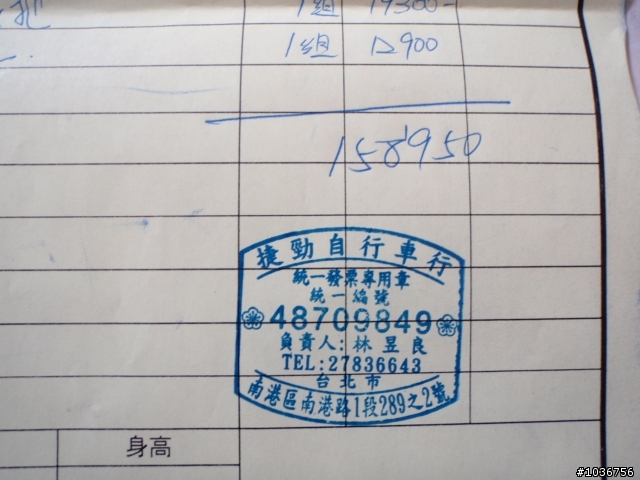 1組 19300-
1組 900
158950
捷勁自行車行
統一發票專用章
統一編號
48709849
負責人:林昱良
TEL:27836643
台北市
南港區南港路1段289之2號
身高
#1036756